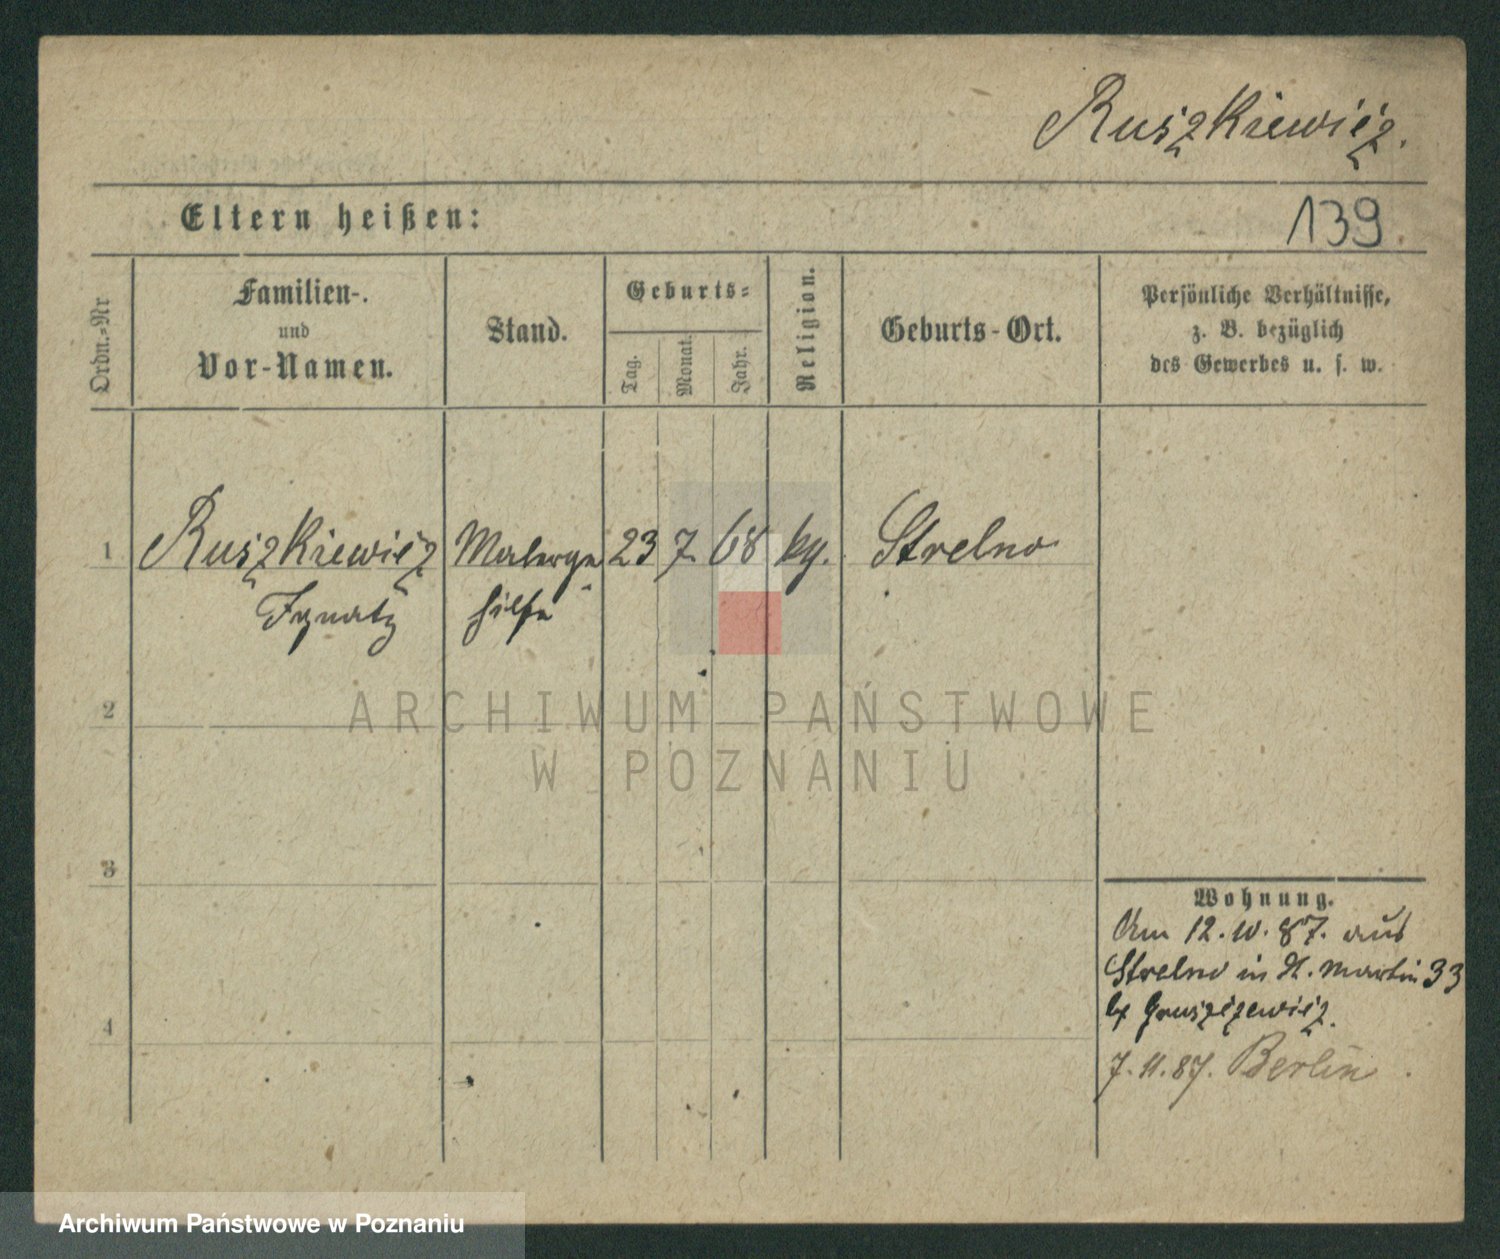 Ruszkiewicz.
Eltern heißen:
139.
Ordn.-Nr
Familien-.
und
Vor-Namen.
Stand.
Geburts-
Tag.
Monat.
Jahr.
Religion.
Geburts-Ort.
Persönliche Verhältnisse,
z. B. bezüglich
des Gewerbes u. s. w.
1 Ruszkiewicz Malerge 23 7 68 kg. Strelno
Ignatz hilfe
2
ARCHIWUM PAŃSTWOWE
W POZNANIU
3
Wohnung.
Am 12. 10. 87. aus
Strelno in St. Martin 33
4
7. 11. 87. Berlin.
Archiwum Państwowe w Poznaniu